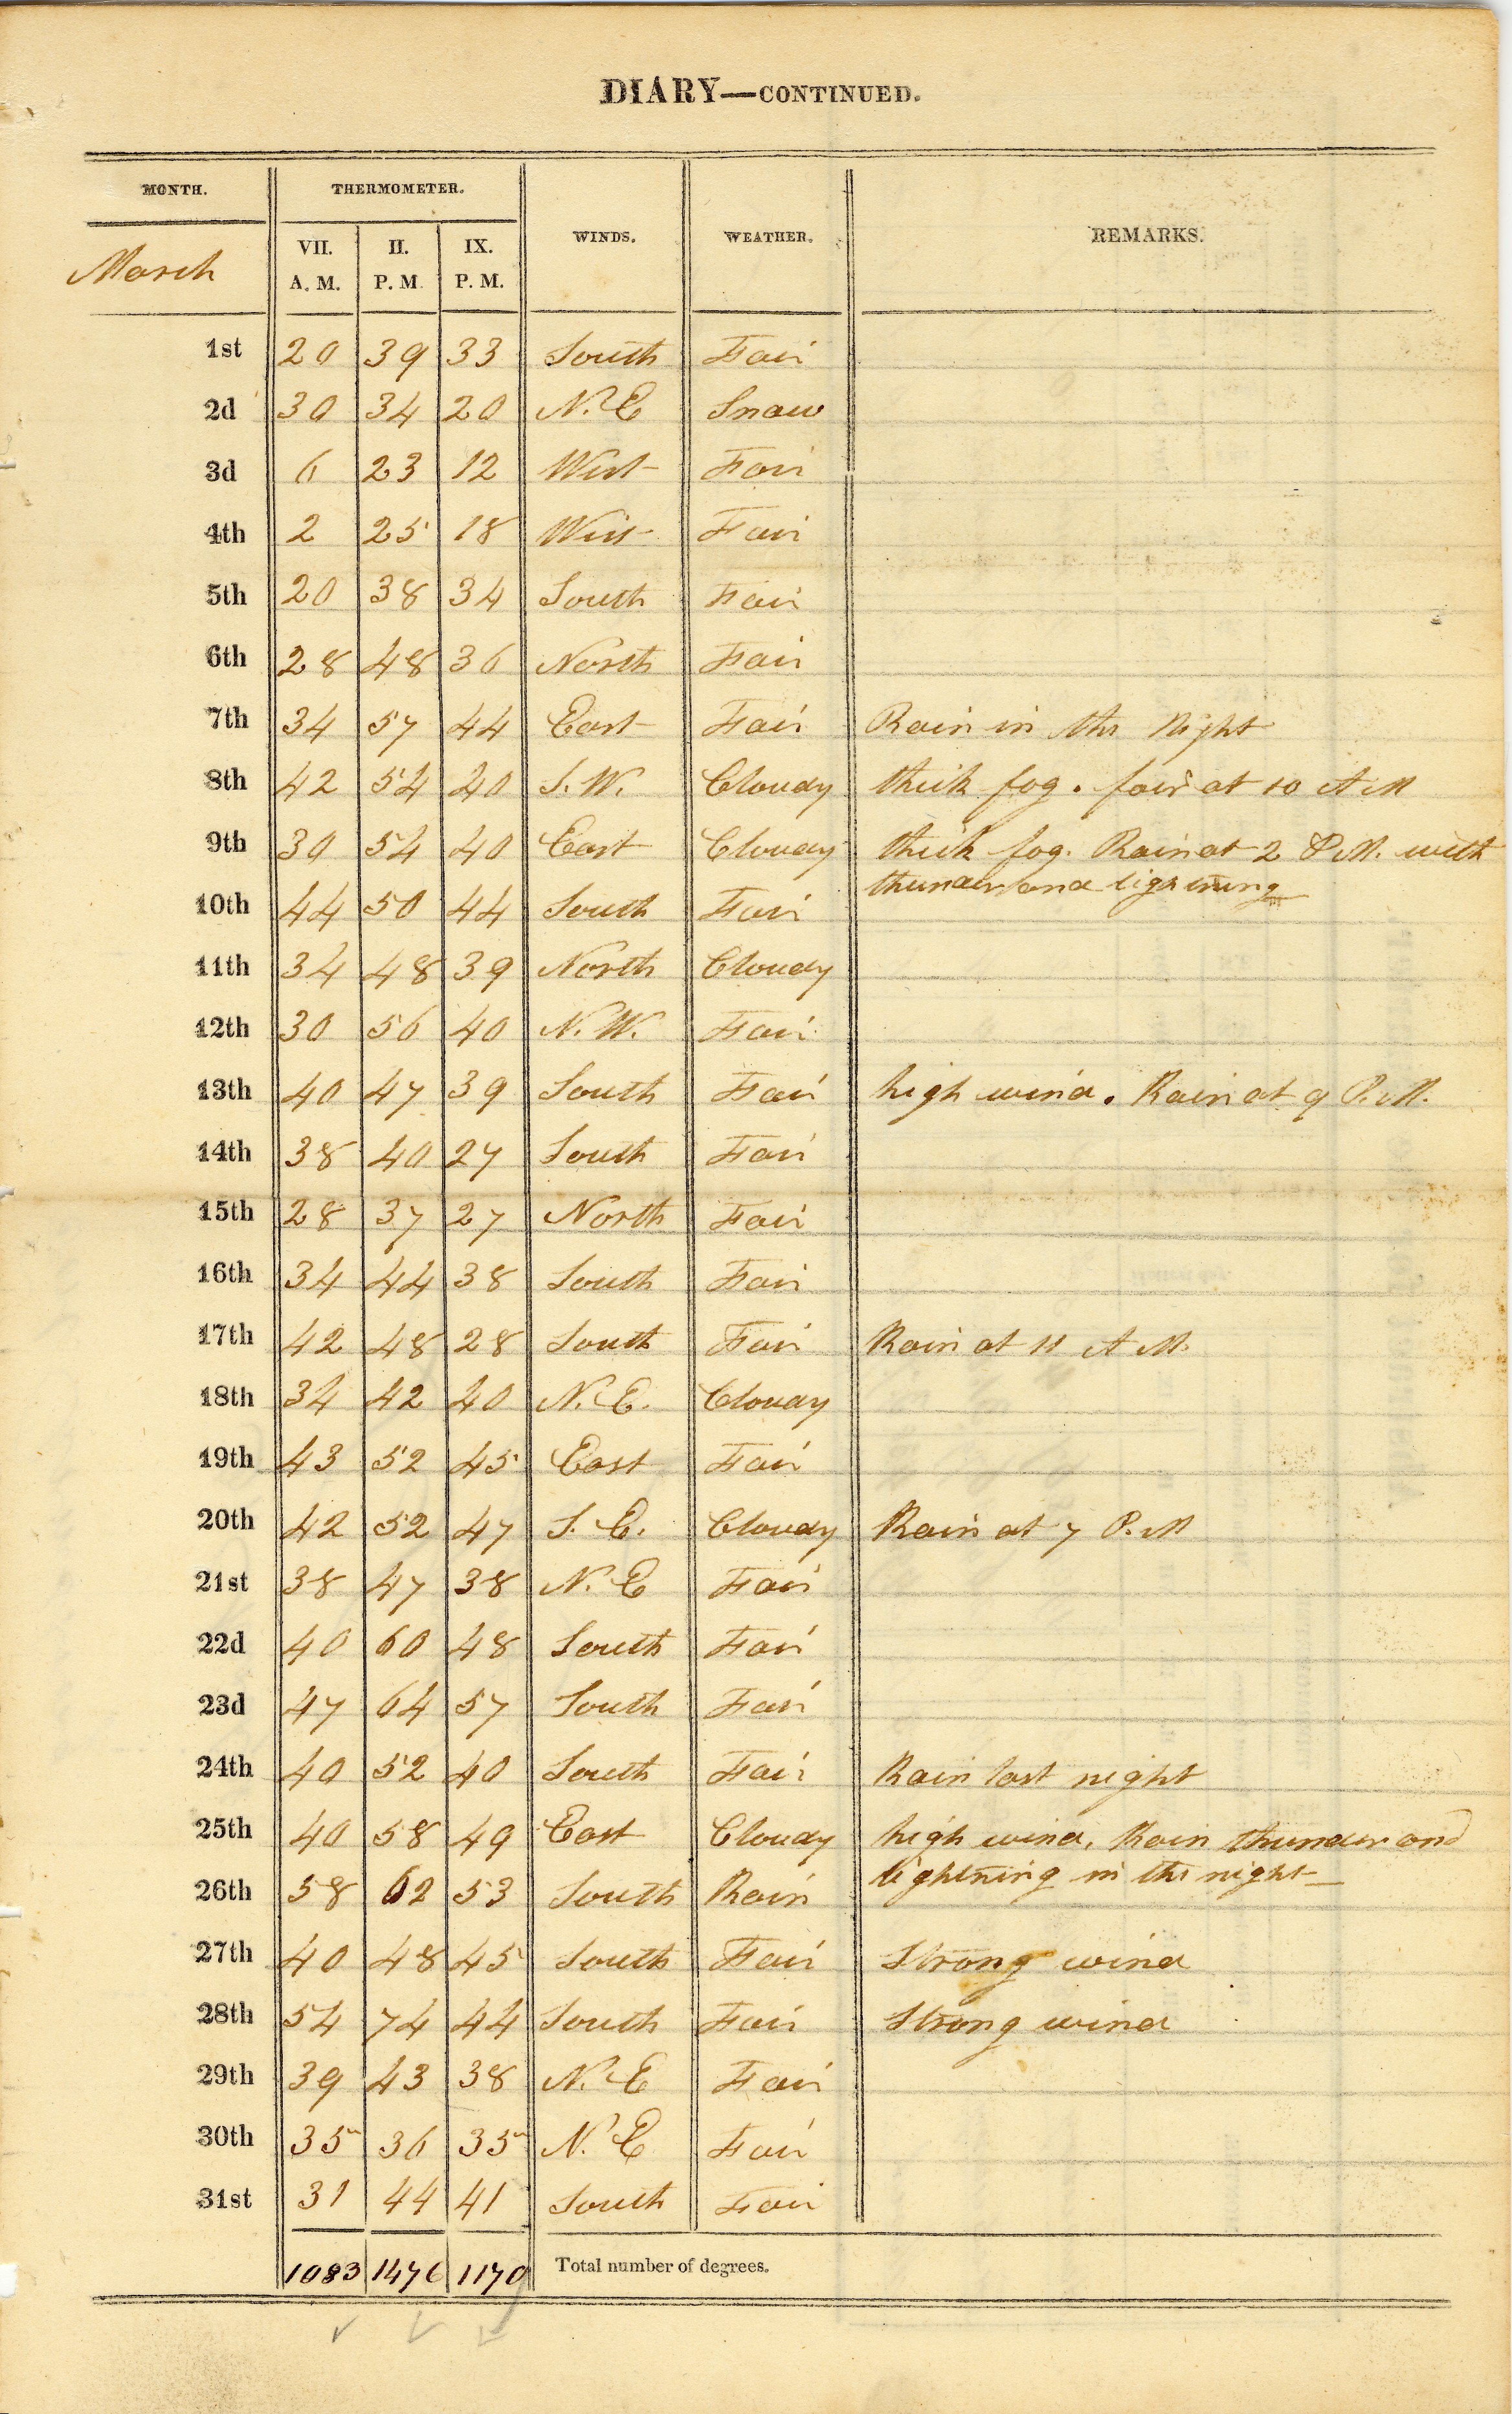 DIARY—CONTINUED.
MONTH. THERMOMETER. WINDS. WEATHER. REMARKS.
March VII. A. M. II. P. M. IX. P. M.
1st 20 39 33 South Fair
2d 30 34 20 N. E Snow
3d 6 23 12 West Fair
4th 2 25 18 West Fair
5th 20 38 34 South Fair
6th 28 48 36 North Fair
7th 34 57 44 East Fair Rain in the Night
8th 42 54 40 S. W. Cloudy thick fog. fair at 10 A M
9th 30 54 40 East Cloudy thick fog. Rain at 2 P.M. with
thunder and lightning
10th 44 50 44 South Fair
11th 34 48 39 North Cloudy
12th 30 56 40 N. W. Fair
13th 40 47 39 South Fair high wind. Rain at 9 P. M.
14th 38 40 27 South Fair
15th 28 37 27 North Fair
16th 34 44 38 South Fair
17th 42 48 28 South Fair Rain at 11 A M.
18th 34 42 40 N. E. Cloudy
19th 43 52 45 East Fair
20th 42 52 47 S. E. Cloudy Rain at 7 P. M
21st 38 47 38 N. E Fair
22d 40 60 48 South Fair
23d 47 64 57 South Fair
24th 40 52 40 South Fair Rain last night
25th 40 58 49 East Cloudy high wind, Rain thunder and
lightning in the night
26th 58 62 53 South Rain
27th 40 48 45 South Fair Strong wind
28th 54 74 44 South Fair Strong wind
29th 39 43 38 N. E Fair
30th 35 36 35 N. E Fair
31st 31 44 41 South Fair
1083 1476 1170 Total number of degrees.